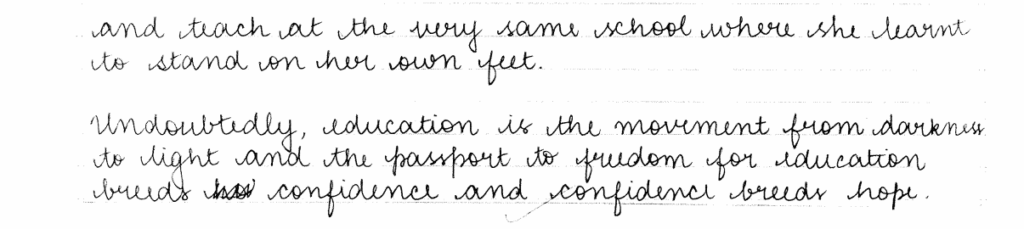 and teach at the very same school where she learnt
to stand on her own feet.
Undoubtedly, education is the movement from darkness
to light and the passport to freedom for education
breeds confidence and confidence breeds hope.